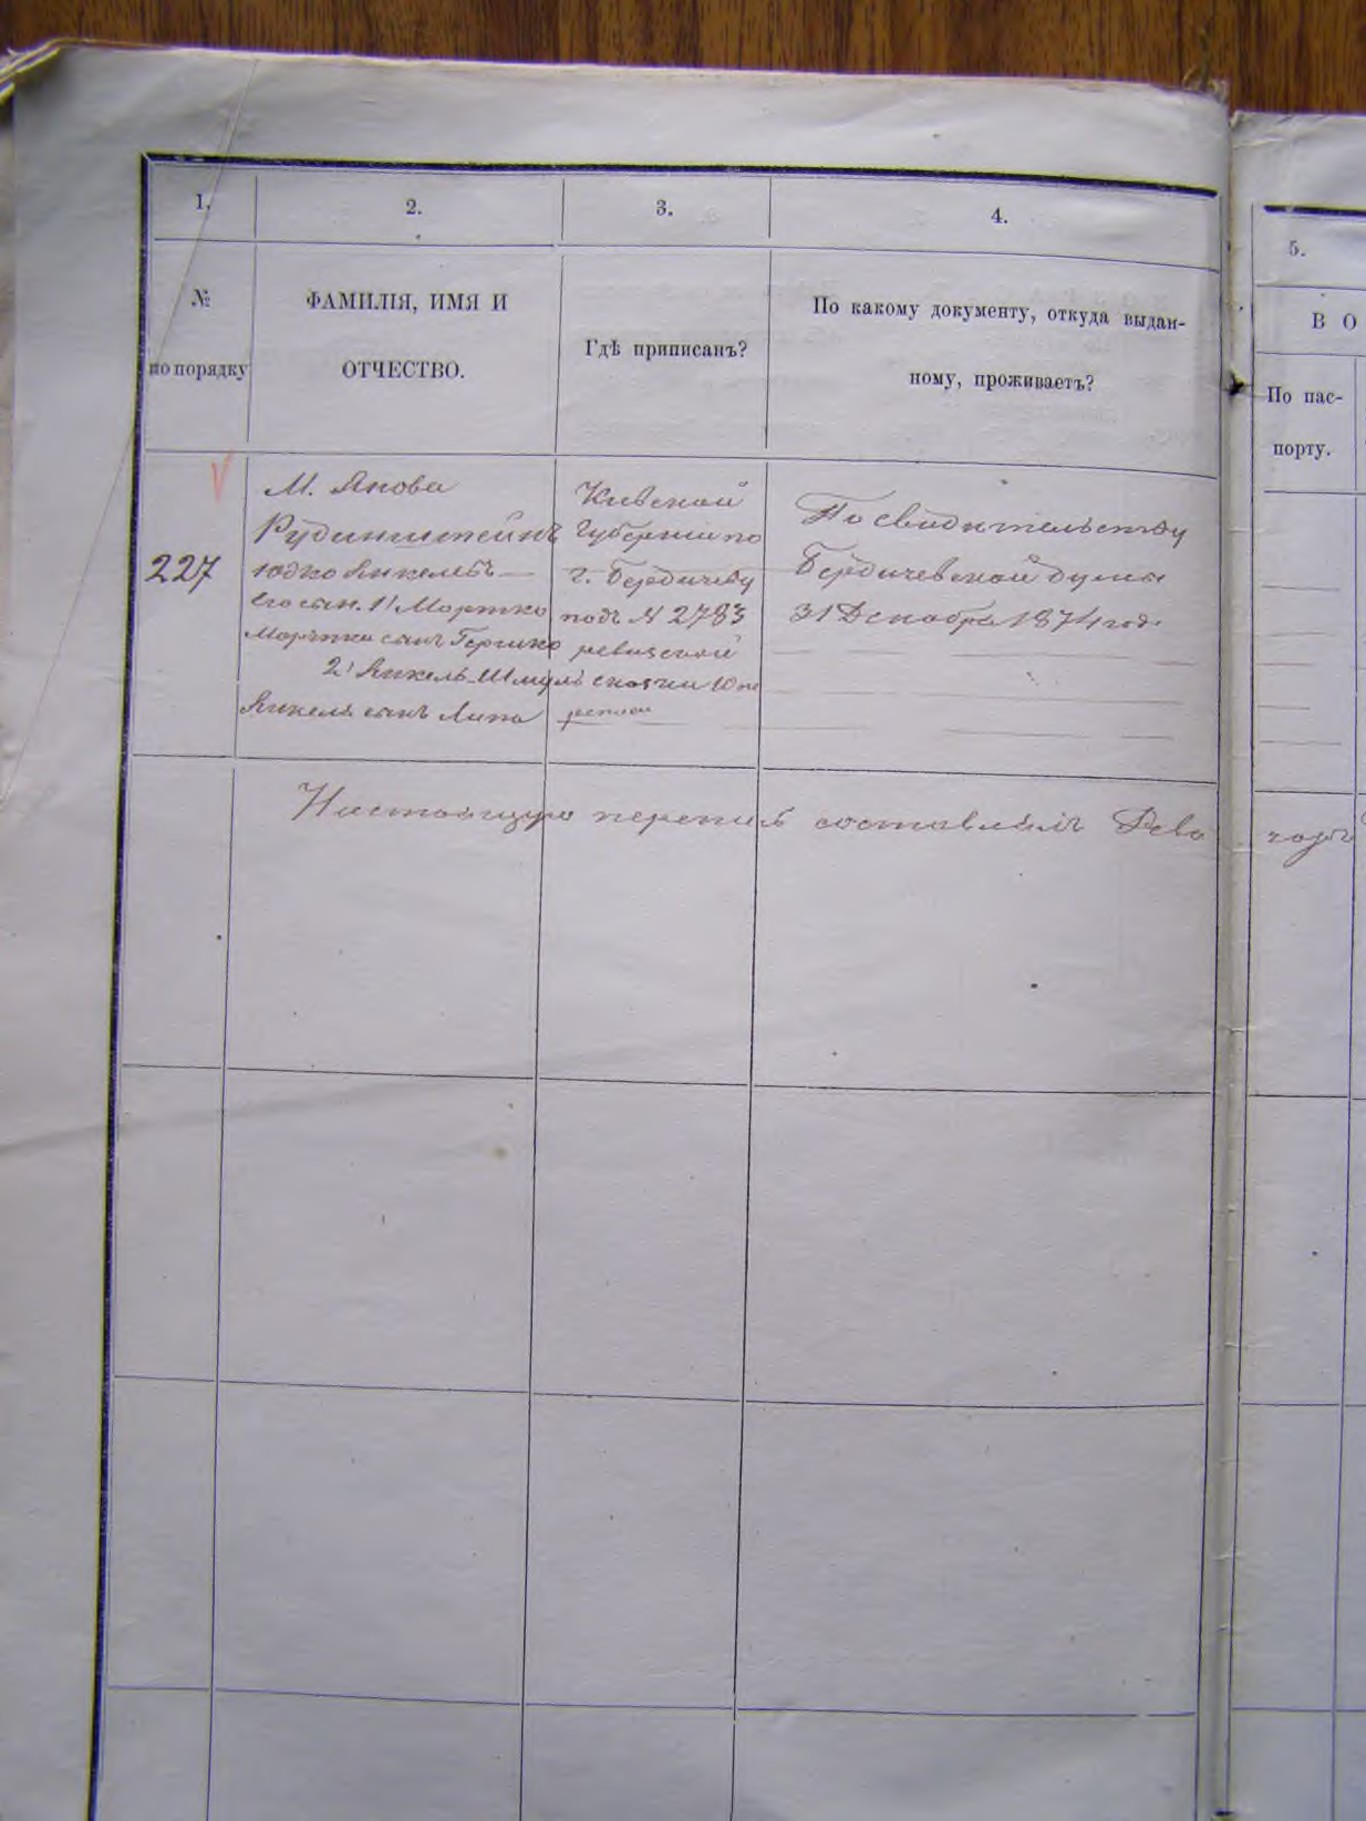 1.
2.
3.
4.
5.
№
по порядку
ФАМИЛІЯ, ИМЯ И
ОТЧЕСТВО.
Гдѣ приписанъ?
По какому документу, откуда выдан-
ному, проживаетъ?
В О
По пас-
порту.
227
М. Янова
Рудинштейнъ
Юдко Янкелевъ
Его сын. 1) Мортко
Мортки сынъ Гершко
2) Янкель-Шмуль
Янкеля сынъ Липа
Кіевской
Губерніи по
г. Бердичеву
подъ № 2783
ревизской
сказки 10 пе
реписи
По свидѣтельству
Бердичевской думы
31 Декабря 1874 год.
Настоящую перепись составлялъ